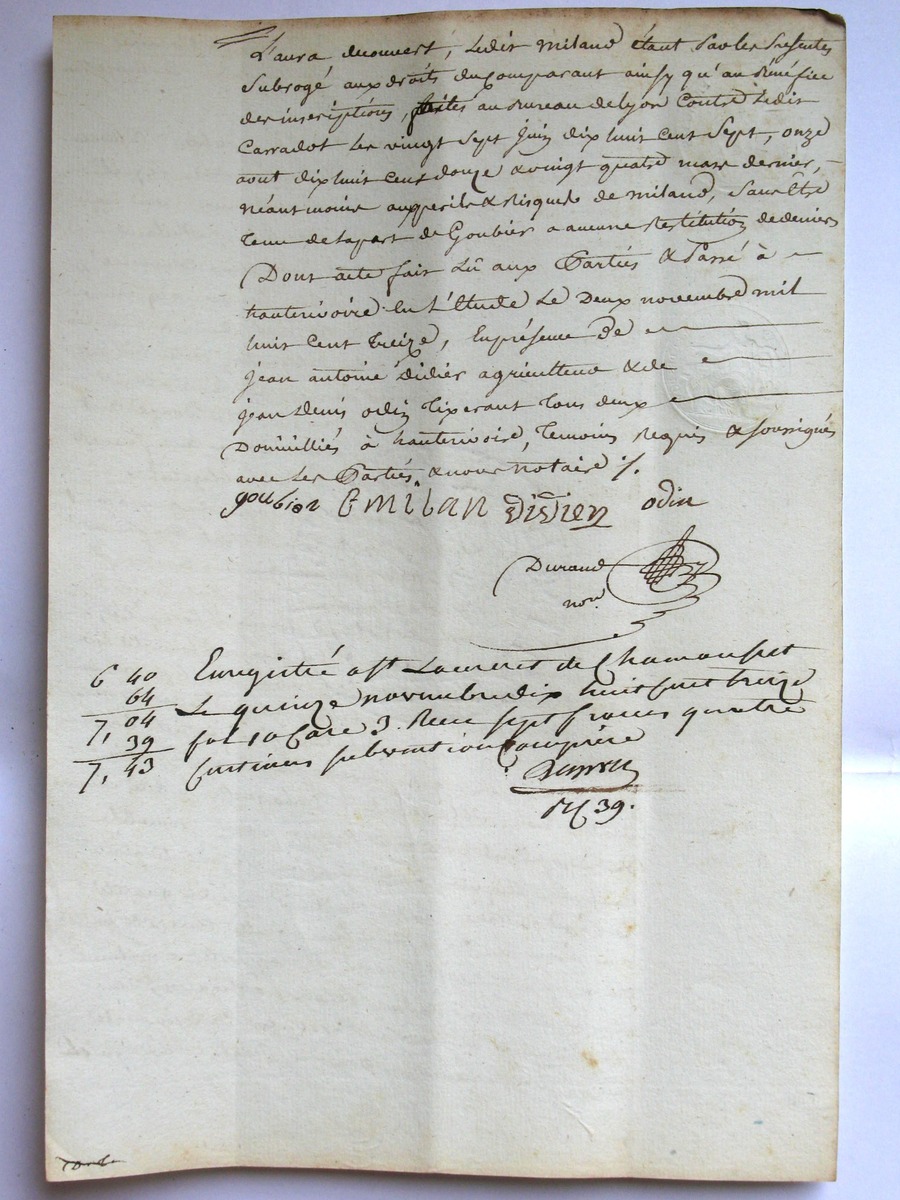 L'aura découvert, Ledit miland étant par les présentes
Subrogé aux droits du comparant ainsy qu'au Bénéfice
des inscriptions, faites au Bureau de Lyon contre Ledit
Carradot Les vingt Sept Juin dix huit cent Sept, onze
aout dix huit cent douze & vingt quatre mars dernier,
néantmoins aux perils & Risques de miland, Sans Être
Tenu de la part de Goubier a aucune Restitution de deniers
Dont acte fait Lû aux Parties & Passé à
hauterivoire En L'Etude Le Deux novembre mil
huit Cent treize, En présence De
Jean antoine didier agriculteur & de
Jean Denis odin Tixerant Tous deux
Domicilliés à hauterivoire, Temoins Requis & soussignés
avec Les Parties & nous notaire ./.
goubier C milan didier odin
Durand
nore
6 40 Enregistré a St Laurent de Chamousset
64
7, 04 Le quinze novembre dix huit cent treize
39 fol 10 Case 3. Recu sept francs quatre
7, 43 Centimes subvention Comprise
R 39.